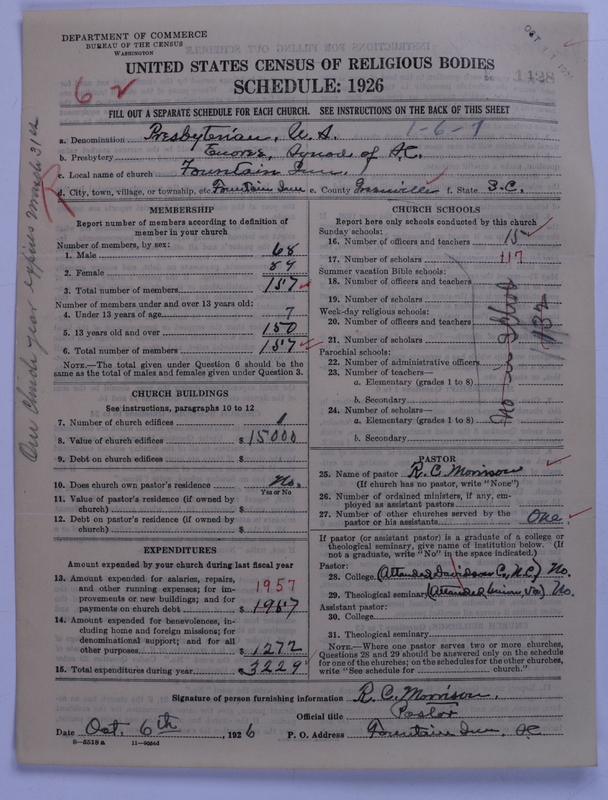 DEPARTMENT OF COMMERCE
BUREAU OF THE CENSUS
WASHINGTON
UNITED STATES CENSUS OF RELIGIOUS BODIES
SCHEDULE: 1926
1428
6 2
FILL OUT A SEPARATE SCHEDULE FOR EACH CHURCH. SEE INSTRUCTIONS ON THE BACK OF THIS SHEET
a. Denomination Presbyterian, U.S. 1-6-7
b. Presbytery Enoree, Synod of S.C.
c. Local name of church Fountain Inn.
d. City, town, village, or township, etc. Fountain Inn e. County Greenville f. State S.C.
Our Church year expires March 31st
MEMBERSHIP
Report number of members according to definition of member in your church
Number of members, by sex:
1. Male 68
2. Female 89
3. Total number of members 157
Number of members under and over 13 years old:
4. Under 13 years of age 7
5. 13 years old and over 150
6. Total number of members 157
NOTE.—The total given under Question 6 should be
same as the total of males and females given under Question 3.
CHURCH BUILDINGS
See instructions, paragraphs 10 to 12
7. Number of church edifices 1
8. Value of church edifices $ 15000
9. Debt on church edifices $
10. Does church own pastor's residence No.
Yes or No
11. Value of pastor's residence (if owned by
church) $
12. Debt on pastor's residence (if owned by
church) $
EXPENDITURES
Amount expended by your church during last fiscal year
13. Amount expended for salaries, repairs,
and other running expenses; for im-
provements or new buildings; and for
payments on church debt $ 1957
1957
14. Amount expended for benevolences, in-
cluding home and foreign missions; for
denominational support; and for all
other purposes $ 1272
15. Total expenditures during year $ 3229
CHURCH SCHOOLS
Report here only schools conducted by this church
Sunday schools:
16. Number of officers and teachers 15
17. Number of scholars 117
Summer vacation Bible schools:
18. Number of officers and teachers
19. Number of scholars
Week-day religious schools:
20. Number of officers and teachers
21. Number of scholars
Parochial schools:
22. Number of administrative officers
23. Number of teachers—
a. Elementary (grades 1 to 8)
b. Secondary
24. Number of scholars—
a. Elementary (grades 1 to 8)
b. Secondary
No. in School
132
PASTOR
25. Name of pastor R. C. Morrison
(If church has no pastor, write "None")
26. Number of ordained ministers, if any, em-
ployed as assistant pastors
27. Number of other churches served by the
pastor or his assistants One.
If pastor (or assistant pastor) is a graduate of a college or
theological seminary, give name of institution below. (If
not a graduate, write "No" in the space indicated.)
Pastor:
28. College (Attended Davidson C., N.C.) No.
29. Theological seminary (Attended Union, Va) No.
Assistant pastor:
30. College
31. Theological seminary
NOTE.—Where one pastor serves two or more churches,
Questions 28 and 29 should be answered only on the schedule
for one of the churches; on the schedules for the other churches,
write "See schedule for church."
Signature of person furnishing information R. C. Morrison.
Official title Pastor
Date Oct. 6th, 1926 P. O. Address Fountain Inn, SC
8—5518a 11—9054d